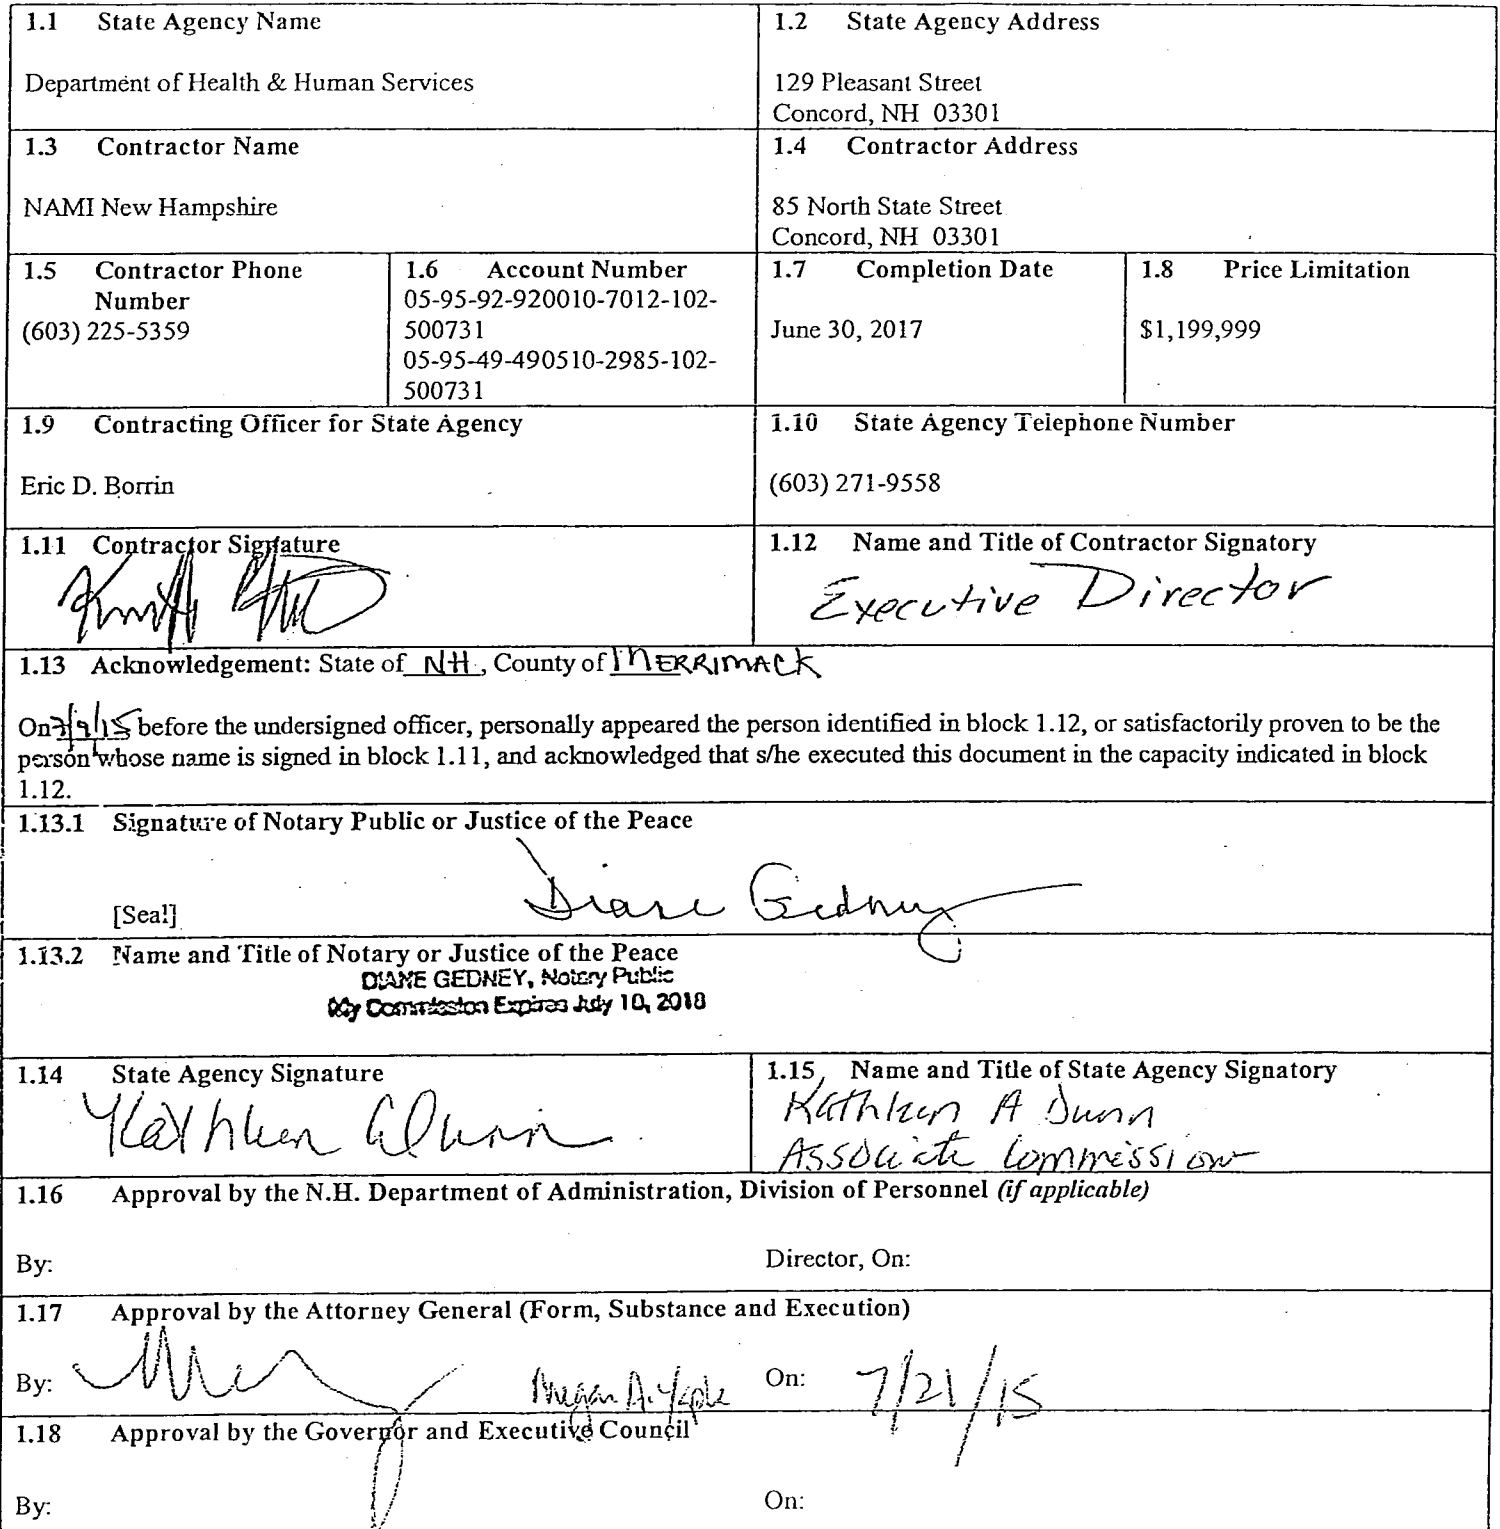 1.1 State Agency Name
Department of Health & Human Services
1.2 State Agency Address
129 Pleasant Street
Concord, NH 03301
1.3 Contractor Name
NAMI New Hampshire
1.4 Contractor Address
85 North State Street
Concord, NH 03301
1.5 Contractor Phone
Number
(603) 225-5359
1.6 Account Number
05-95-92-920010-7012-102-
500731
05-95-49-490510-2985-102-
500731
1.7 Completion Date
June 30, 2017
1.8 Price Limitation
$1,199,999
1.9 Contracting Officer for State Agency
Eric D. Borrin
1.10 State Agency Telephone Number
(603) 271-9558
1.11 Contractor Signature
1.12 Name and Title of Contractor Signatory
Executive Director
1.13 Acknowledgement: State of NH, County of MERRIMACK
On 7/9/15 before the undersigned officer, personally appeared the person identified in block 1.12, or satisfactorily proven to be the
person whose name is signed in block 1.11, and acknowledged that s/he executed this document in the capacity indicated in block
1.12.
1.13.1 Signature of Notary Public or Justice of the Peace
Diane Gedney
[Seal]
1.13.2 Name and Title of Notary or Justice of the Peace
DIANE GEDNEY, Notary Public
My Commission Expires July 10, 2018
1.14 State Agency Signature
Kathleen A Dunn
1.15 Name and Title of State Agency Signatory
Kathleen A Dunn
Associate Commissioner
1.16 Approval by the N.H. Department of Administration, Division of Personnel (if applicable)
By:
Director, On:
1.17 Approval by the Attorney General (Form, Substance and Execution)
By: Megan A.
On: 7/21/15
1.18 Approval by the Governor and Executive Council
By:
On: